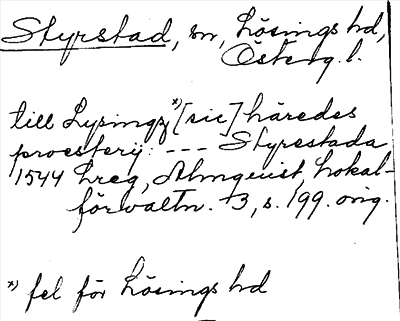 Styrstad, sn, Lösings hd,
Österg. l.
till Lysingz *) [sic] häredes
proesterij: --- Styrestada
1544 Lreg, Almquist, Lokal-
förvaltn. 3, s. 199. orig.
*) fel för Lösings hd